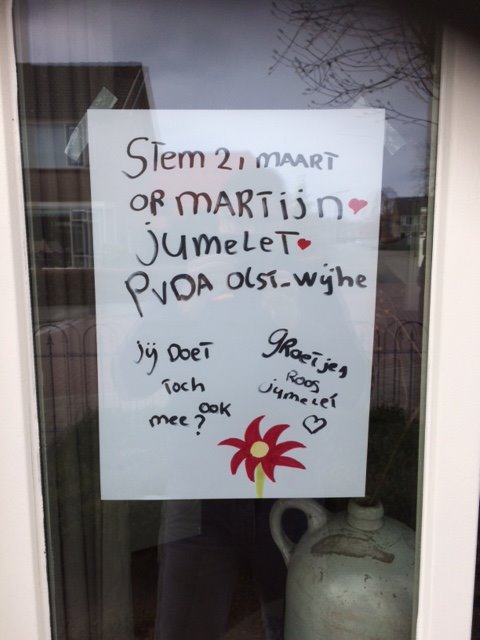 Stem 21 MAART
OP MARTijn
jumeLeT
PVDA OLST-Wijhe
jij DoeT
TOCH
ook
mee?
GRoetjes
ROOS
jumeLeT